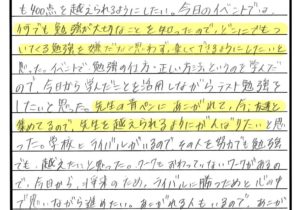 も400点を越えられるようにしたい。今日のイベントでは、
何でも勉強が大切なことを知ったので、どこにでも
ついてくる勉強を嫌だなと思わず、楽しくできるようにしたいと
思った。イベントで勉強の仕方・正しい方法というのを学んだ
ので、今日から学んだことを活用しながらテスト勉強を
したいと思った。先生の青ペンにあこがれて、今、友達と
集めてるので、先生を越えられるようにがんばりたいと思
った。学校にライバルがいるのでその人を努力でも勉強
でも、越えたいと思った。ワークもおわっていないワークがあるの
で、今日から、将来のため、ライバルに勝つためと心の中
で思いながら進めたい。あこがれる人もいるので、あ